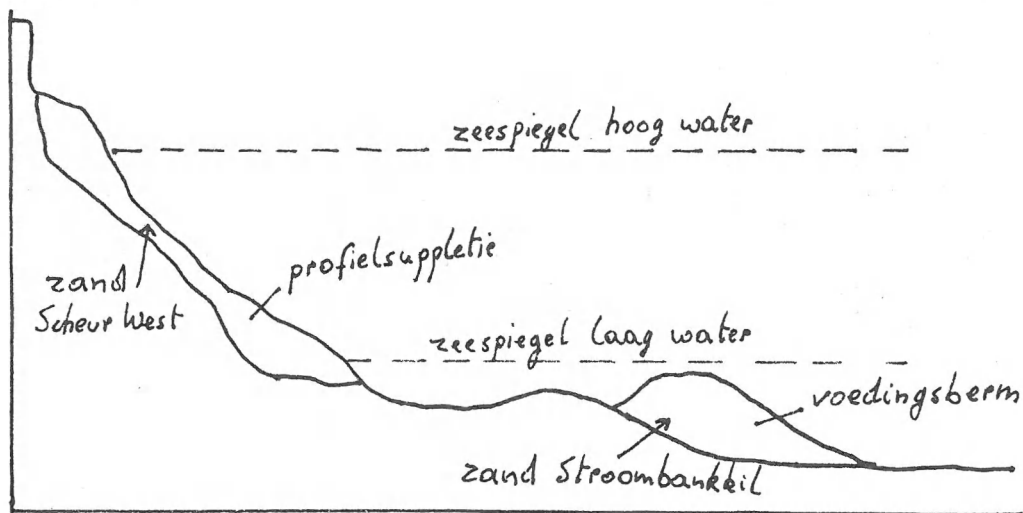 zeespiegel hoog water
profielsuppletie
zand
Scheur West
zeespiegel laag water
voedingsberm
zand Stroombankkil